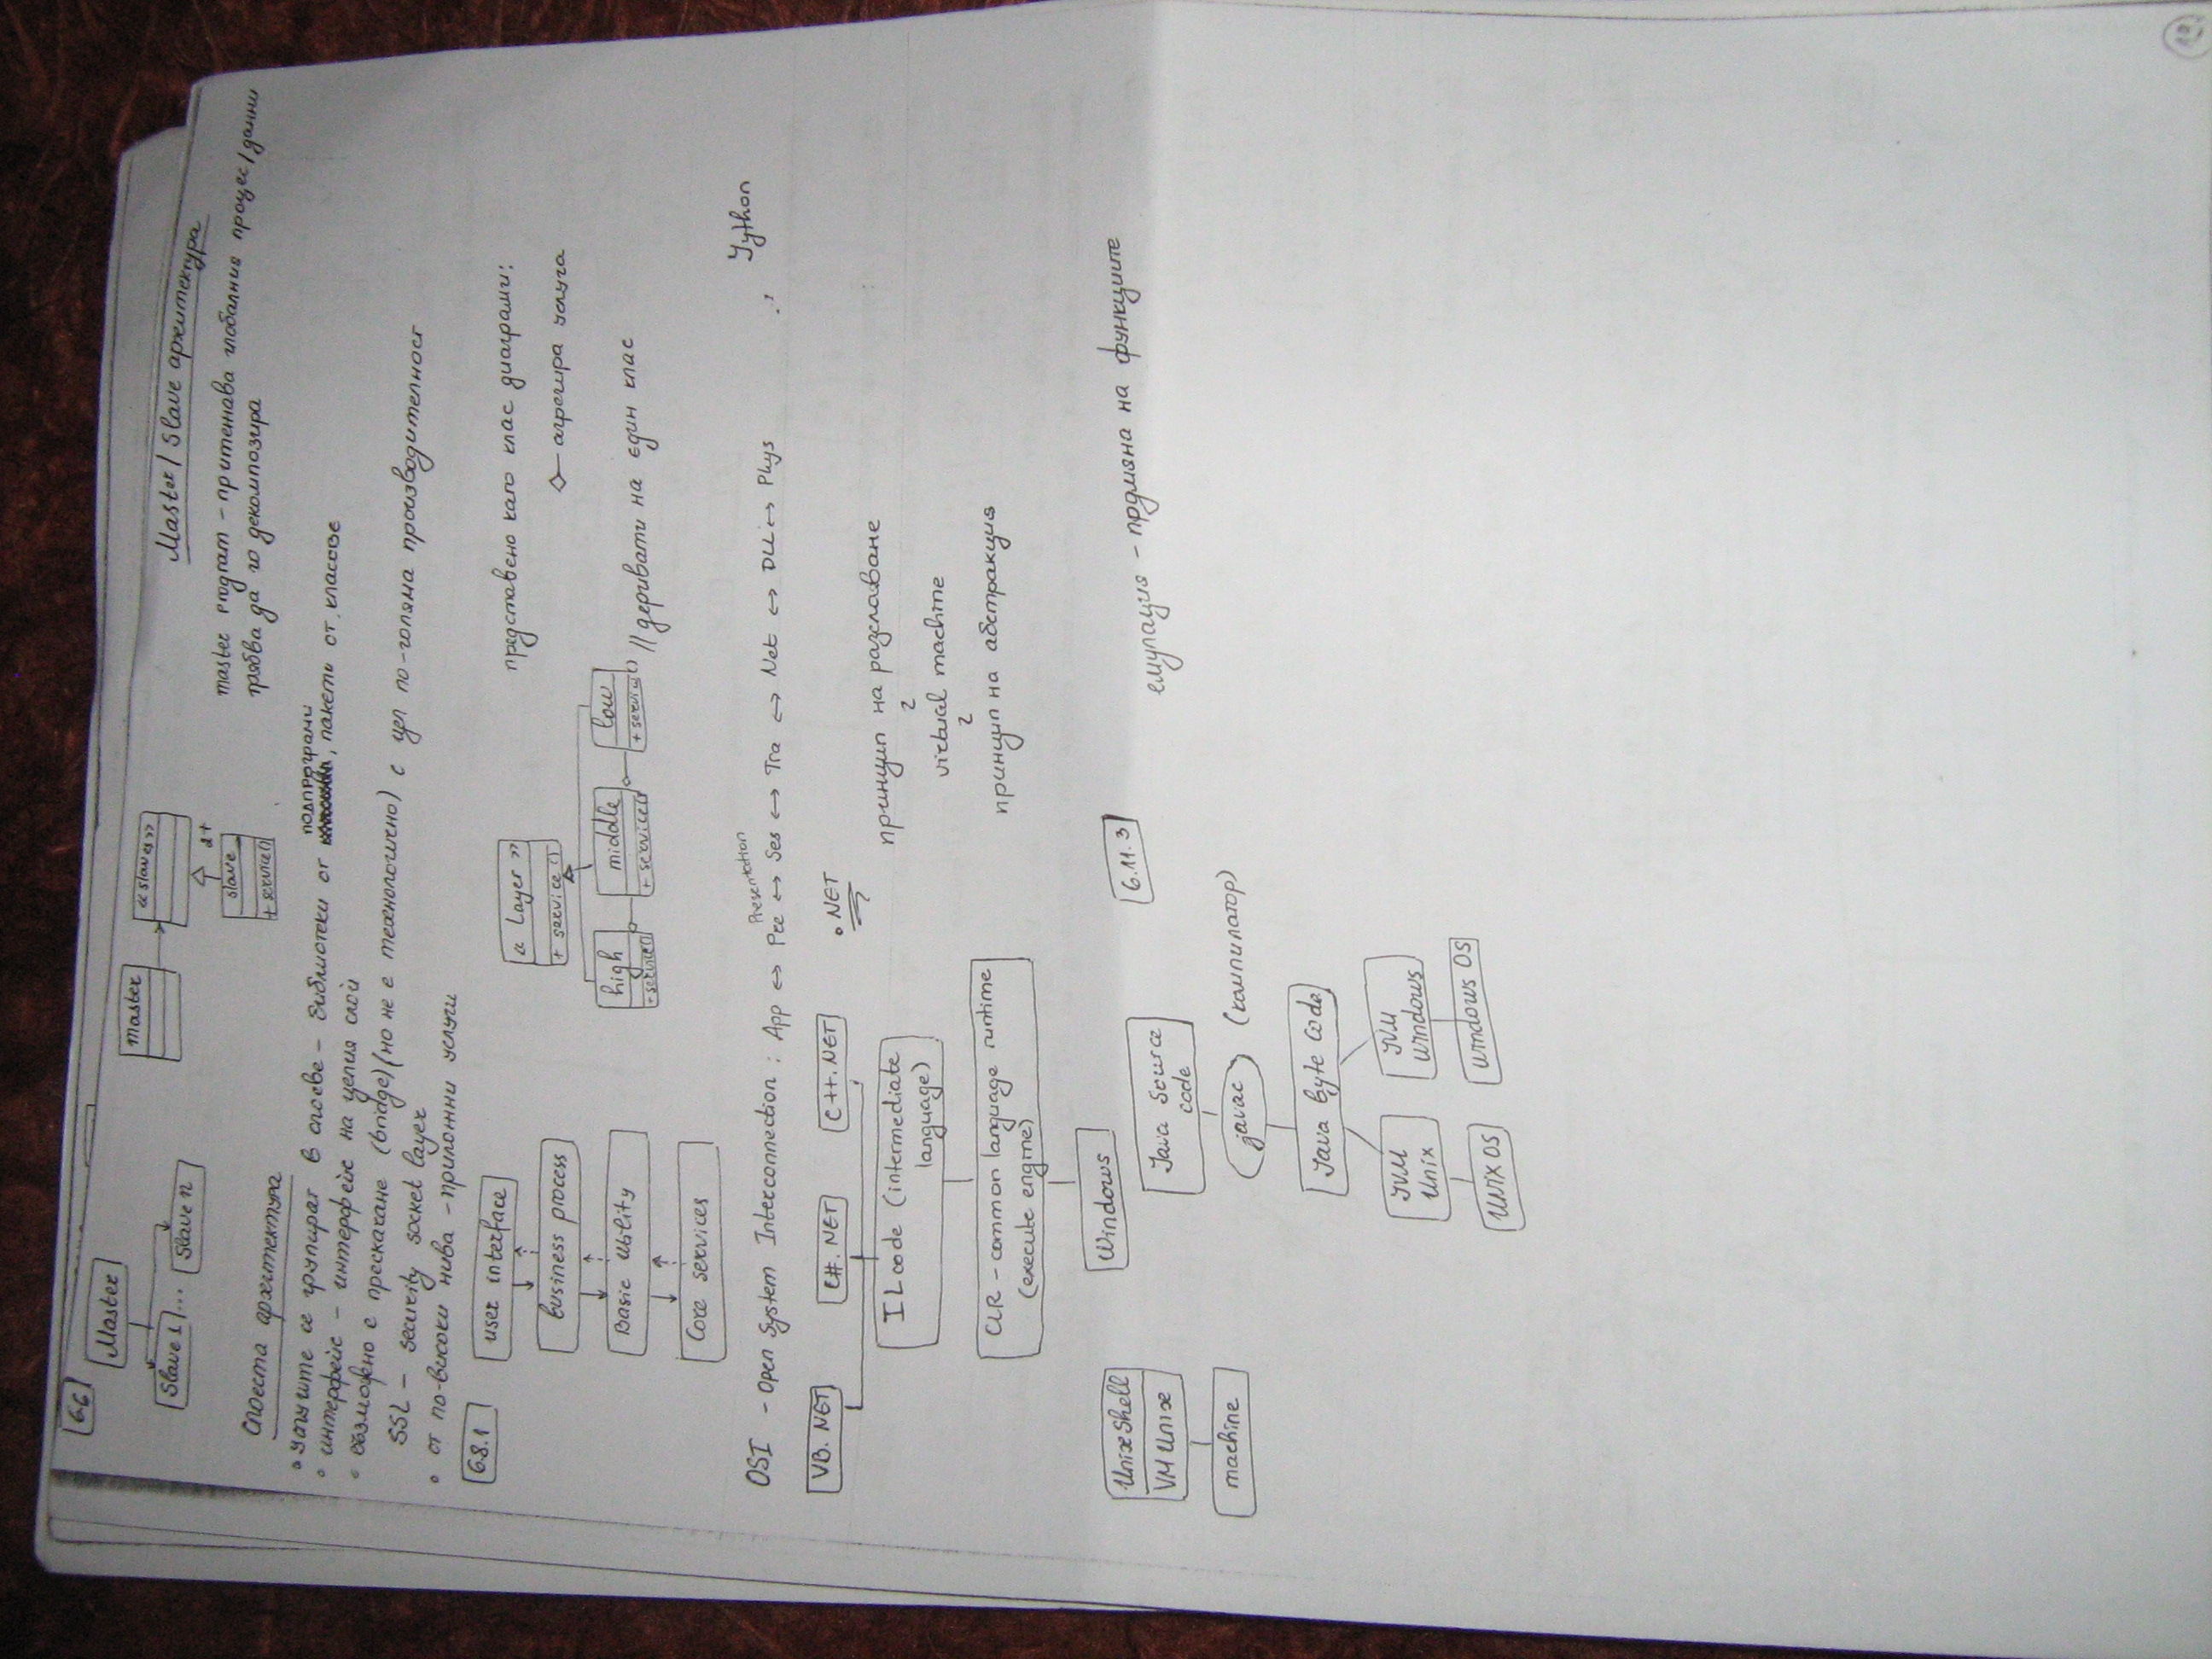 6.6
Master
Slave 1
...
Slave n
master
«slaves»
slave
1+
+ service()
Master / Slave архитектура
master program – притежава глобалния процес / данни
трябва да го декомпозира
Слоеста архитектура
• Услугите се групират в слоеве – библиотеки от подпрограми, пакети от класове
• интерфейс – интерфейс на целия слой
• възможно е прескачане (bridge) (но не е технологично) с цел по-голяма производителност
SSL – security socket layer
• от по-високи нива – приложни услуги
6.8.1
user interface
business process
Basic utility
Core services
« Layer »
+ service()
high
+ service()
middle
+ service()
low
+ service()
представено като клас диаграми:
◇— агрегира услуга
// деривати на един клас
OSI – Open System Interconnection : App ↔ Pre ↔ Ses ↔ Tra ↔ Net ↔ DLL ↔ Phys
Presentation
VB.NET
C#.NET
C++.NET
• .NET
Jython
IL code (intermediate
language)
CLR – common language runtime
(execute engine)
Windows
принцип на разслояване
virtual machine
принцип на абстракция
Unix Shell
VM Unix
machine
Java Source
code
javac
(компилатор)
Java Byte Code
JVM
Unix
JVM
Windows
UNIX OS
Windows OS
6.11.3
емулация – прдмяна на функциите